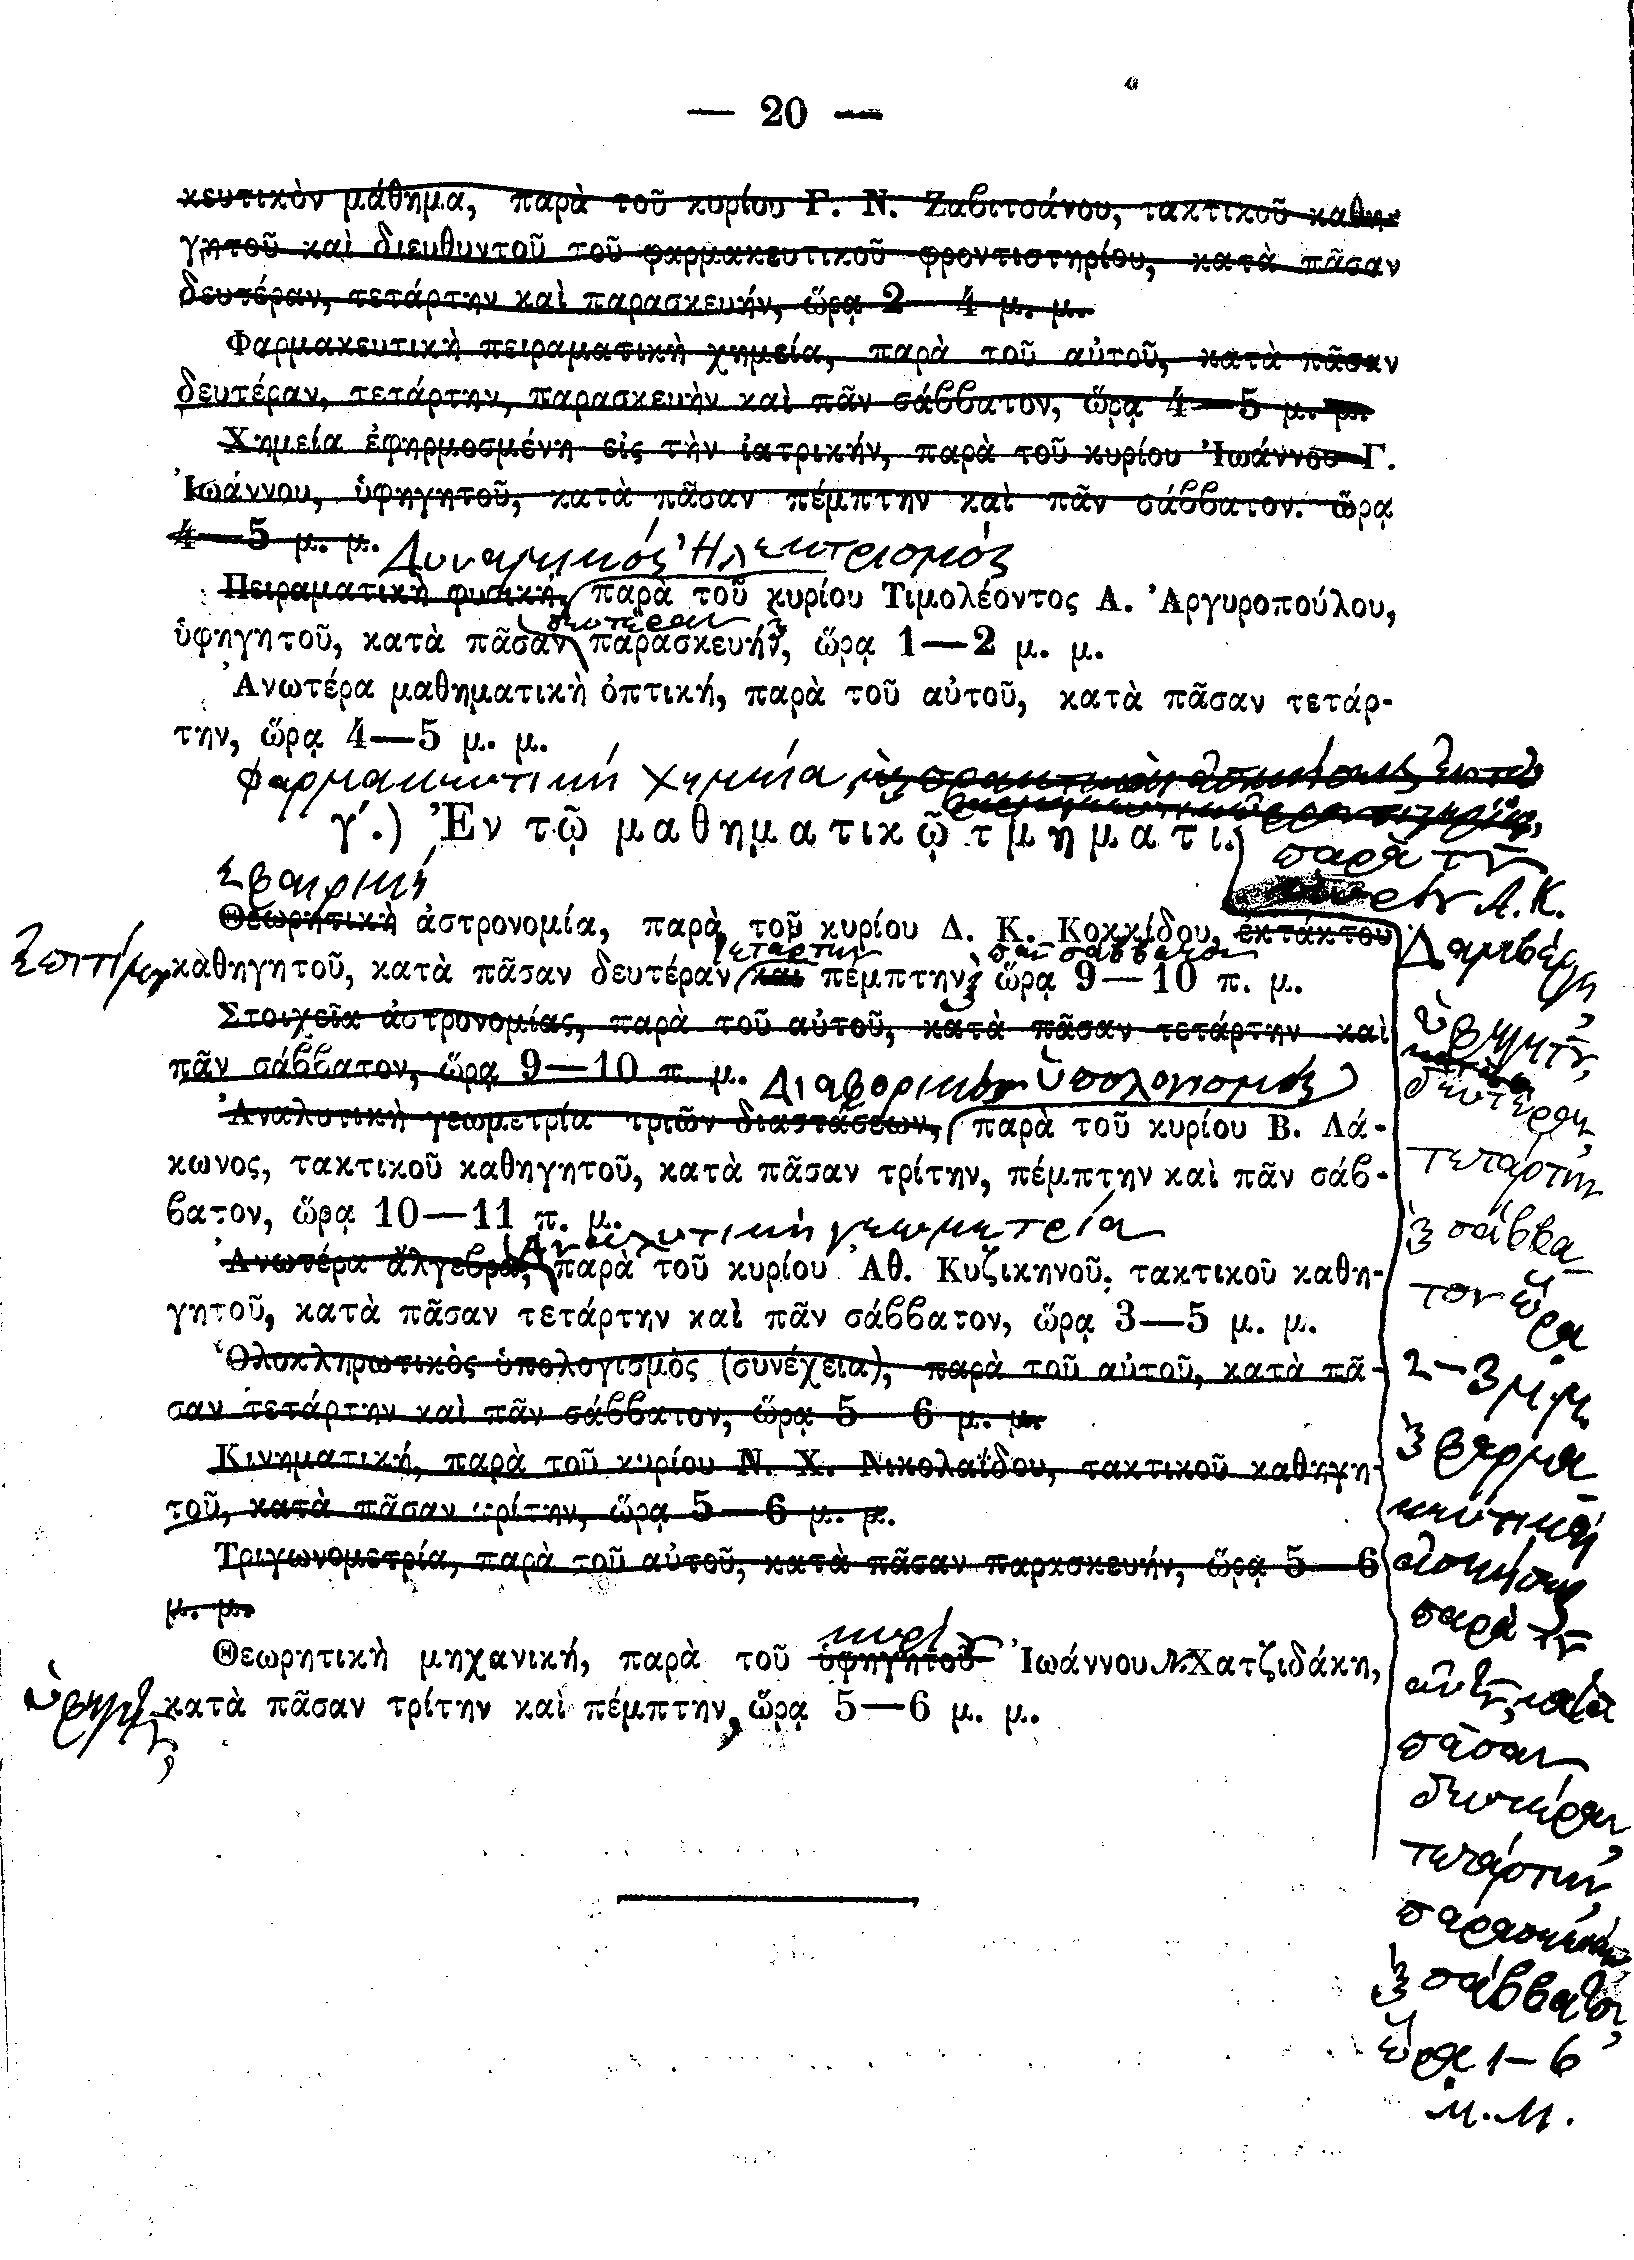 — 20 —
κευτικὸν μάθημα, παρὰ τοῦ κυρίου Γ. Ν. Ζαβιτσάνου, τακτικοῦ καθη-
γητοῦ καὶ διευθυντοῦ τοῦ φαρμακευτικοῦ φροντιστηρίου, κατὰ πᾶσαν
δευτέραν, τετάρτην καὶ παρασκευήν, ὥρᾳ 2—4 μ. μ.
Φαρμακευτικὴ πειραματικὴ χημεία, παρὰ τοῦ αὐτοῦ, κατὰ πᾶσαν
δευτέραν, τετάρτην, παρασκευὴν καὶ πᾶν σάββατον, ὥρᾳ 4—5 μ. μ.
Χημεία ἐφηρμοσμένη εἰς τὴν ἰατρικήν, παρὰ τοῦ κυρίου Ἰωάννου Γ.
Ἰωάννου, ὑφηγητοῦ, κατὰ πᾶσαν πέμπτην καὶ πᾶν σάββατον. ὥρᾳ
4—5 μ. μ.
Δυναμικός Ἠλεκτρισμός
Πειραματικὴ φυσική, παρὰ τοῦ κυρίου Τιμολέοντος Α. Ἀργυροπούλου,
δευτέραν
ὑφηγητοῦ, κατὰ πᾶσαν παρασκευήν, ὥρᾳ 1—2 μ. μ.
Ἀνωτέρα μαθηματικὴ ὀπτική, παρὰ τοῦ αὐτοῦ, κατὰ πᾶσαν τετάρ-
την, ὥρᾳ 4—5 μ. μ.
Φαρμακευτική χημεία,
γ΄.) Ἐν τῷ μαθηματικῷ τμήματι.
Σφαιρική
Θεωρητικὴ ἀστρονομία, παρὰ τοῦ κυρίου Δ. Κ. Κοκκίδου, ἐκτάκτου
τετάρτην πᾶν σάββατον
ἐπιτίμου καθηγητοῦ, κατὰ πᾶσαν δευτέραν καὶ πέμπτην, ὥρᾳ 9—10 π. μ.
Στοιχεῖα ἀστρονομίας, παρὰ τοῦ αὐτοῦ, κατὰ πᾶσαν τετάρτην καὶ
πᾶν σάββατον, ὥρᾳ 9—10 π. μ.
Διαφορικός ὑπολογισμός
Ἀναλυτικὴ γεωμετρία τριῶν διαστάσεων, παρὰ τοῦ κυρίου Β. Λά-
κωνος, τακτικοῦ καθηγητοῦ, κατὰ πᾶσαν τρίτην, πέμπτην καὶ πᾶν σάβ-
βατον, ὥρᾳ 10—11 π. μ.
Ἀναλυτική γεωμετρία
Ἀνωτέρα ἄλγεβρα, παρὰ τοῦ κυρίου Ἀθ. Κυζικηνοῦ, τακτικοῦ καθη-
γητοῦ, κατὰ πᾶσαν τετάρτην καὶ πᾶν σάββατον, ὥρᾳ 3—5 μ. μ.
Ὁλοκληρωτικὸς ὑπολογισμὸς (συνέχεια), παρὰ τοῦ αὐτοῦ, κατὰ πᾶ-
σαν τετάρτην καὶ πᾶν σάββατον, ὥρᾳ 5—6 μ. μ.
Κινηματική, παρὰ τοῦ κυρίου Ν. Χ. Νικολαΐδου, τακτικοῦ καθηγη-
τοῦ, κατὰ πᾶσαν τρίτην, ὥρᾳ 5—6 μ. μ.
Τριγωνομετρία, παρὰ τοῦ αὐτοῦ, κατὰ πᾶσαν παρασκευήν, ὥρᾳ 5—6
μ. μ.
κυρίου
Θεωρητικὴ μηχανική, παρὰ τοῦ ὑφηγητοῦ Ἰωάννου Ν. Χατζιδάκη,
ὑφηγητοῦ, κατὰ πᾶσαν τρίτην καὶ πέμπτην, ὥρᾳ 5—6 μ. μ.
παρὰ τοῦ
κυρίου Α. Κ.
Δαμβέργη,
ὑφηγητοῦ,
δευτέραν,
τετάρτην
ϗ σάββα-
τον ὥρᾳ
2-3 μ. μ.
ϗ φαρμα-
κευτικαί
ἀσκήσεις
παρὰ τοῦ
αὐτοῦ, κατὰ
πᾶσαν
δευτέραν,
τετάρτην,
παρασκευήν
ϗ σάββατον,
ὥρᾳ 1-6
μ. μ.